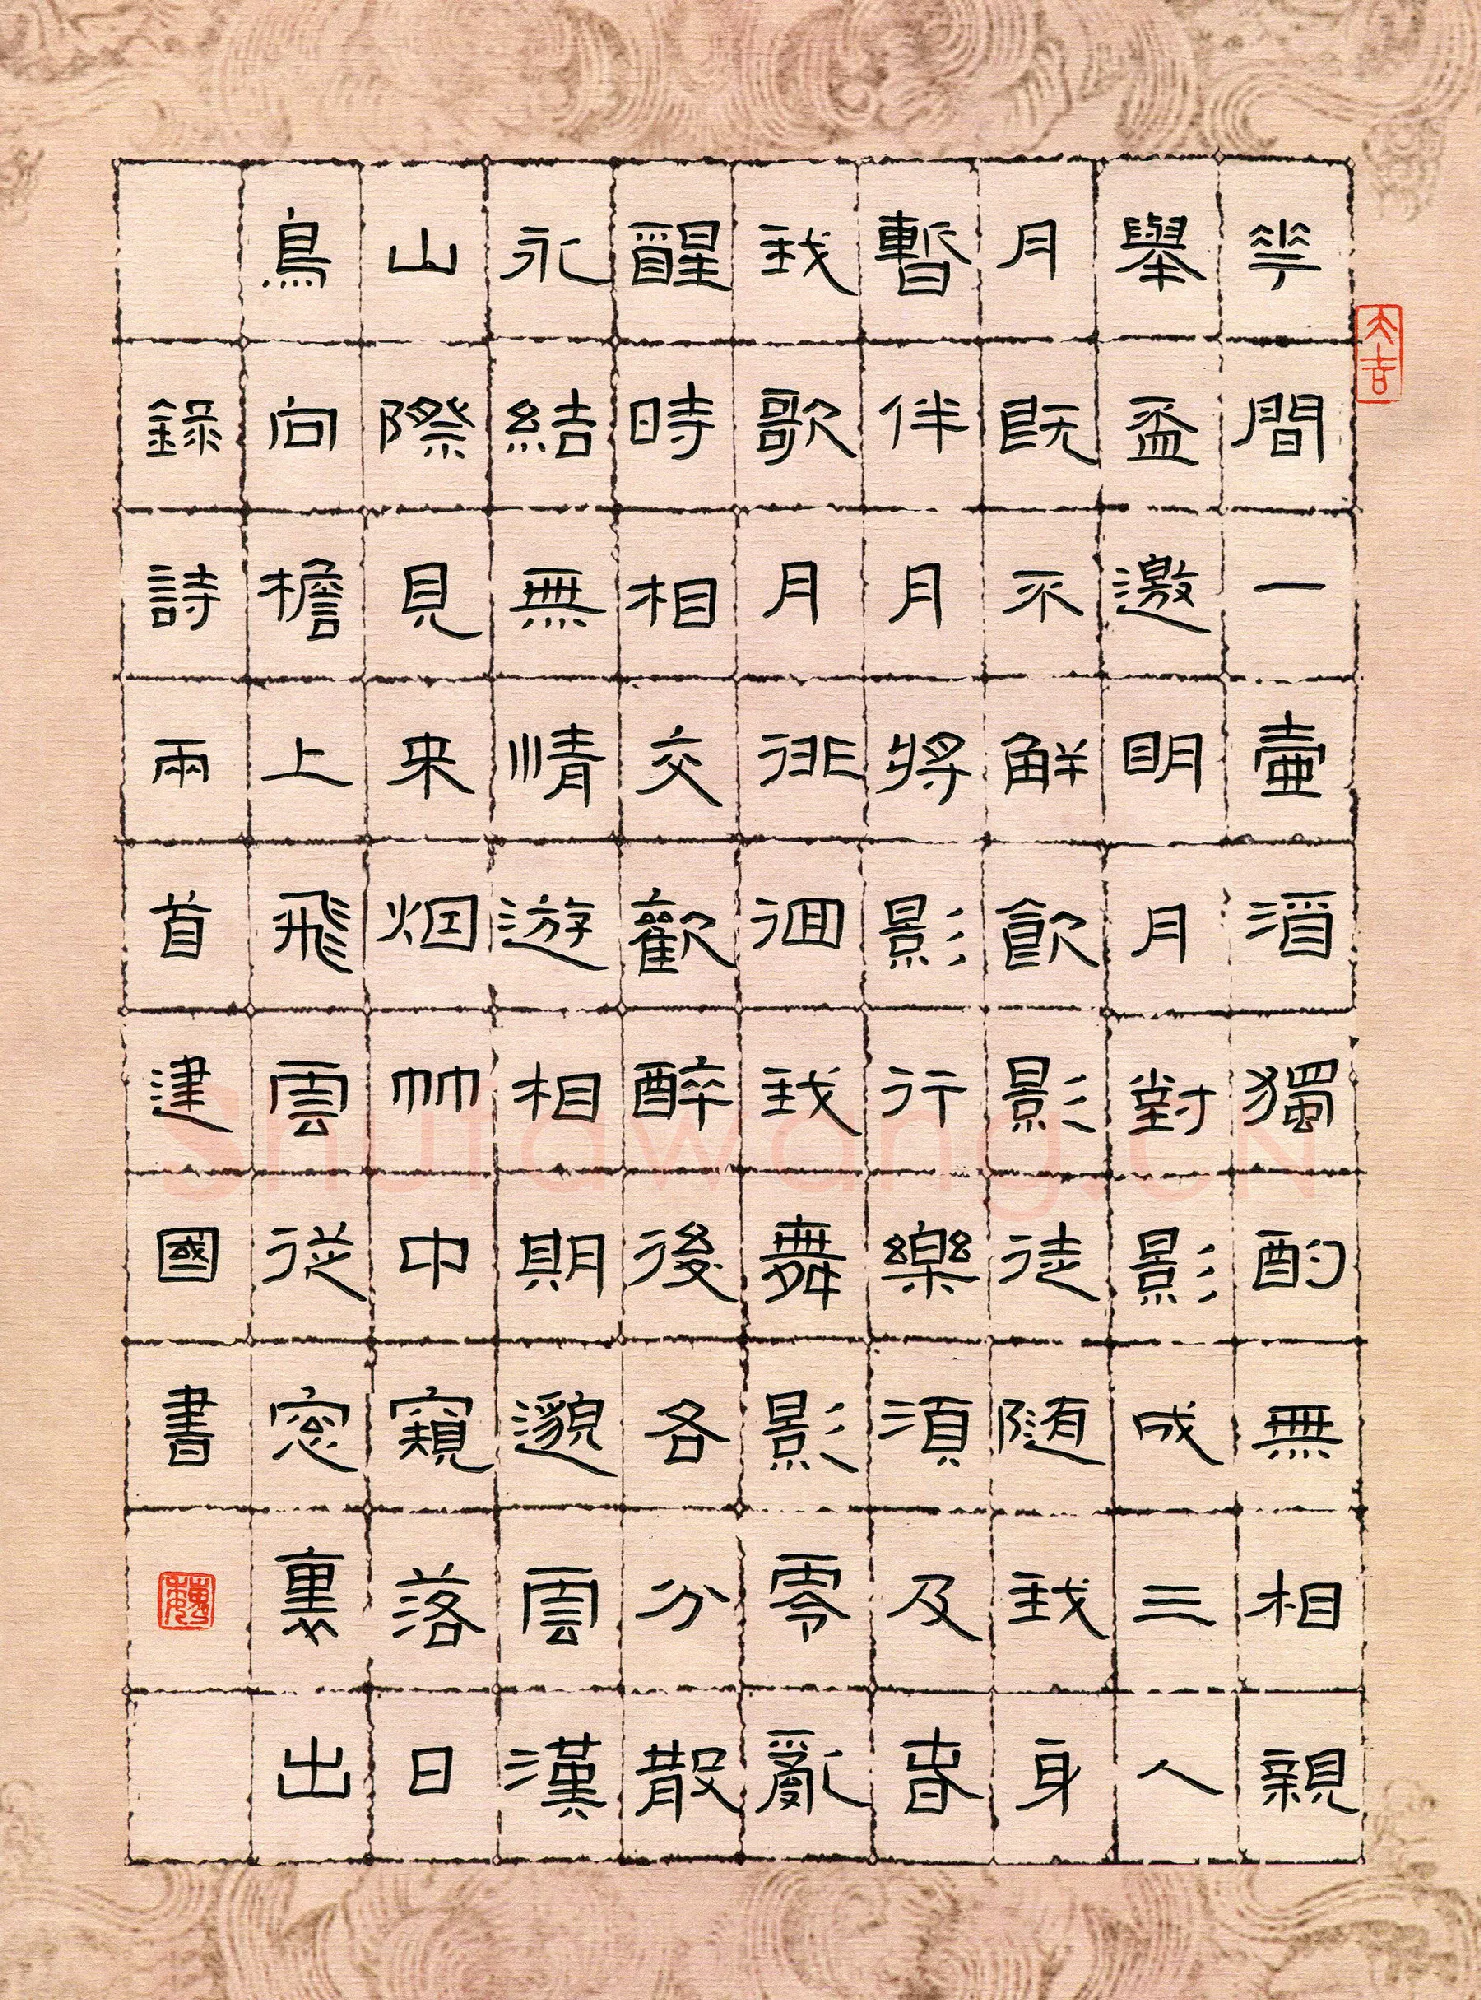 花間一壷酒獨酌無相親
舉盃邀明月對影成三人
月既不解飲影徒随我身
暫伴月將影行樂須及春
我歌月徘徊我舞影零亂
醒時相交歡醉後各分散
永結無情遊相期邈雲漢
山際見来烟竹中窺落日
鳥向檐上飛雲從窓裏出
錄詩兩首建國書
大吉
Shufawang.CN